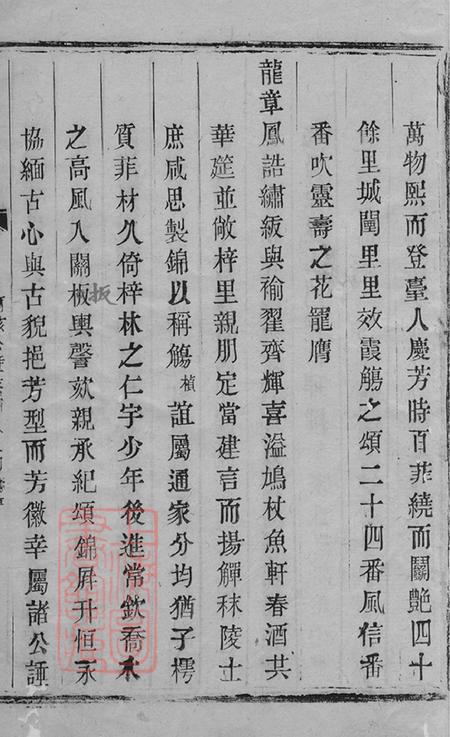 萬物熙而登臺人慶芳時百菲繞而鬭艷四十
餘里城闉里里效霞觴之頌二十四番風信番
番吹靈壽之花寵膺
龍章鳳誥繡紱與褕翟齊輝喜溢鳩杖魚軒春酒共
華筵並敞梓里親朋定當建言而揚觶秣陵士
庶咸思製錦以稱觴楨誼屬通家分均猶子樗
質菲材久倚梓林之仁宇少年後進常欽喬木
之高風入關板輿謦欬親承紀頌錦屏升恒永
扳
協緬古心與古貌挹芳型而芳徽幸屬諸公諈